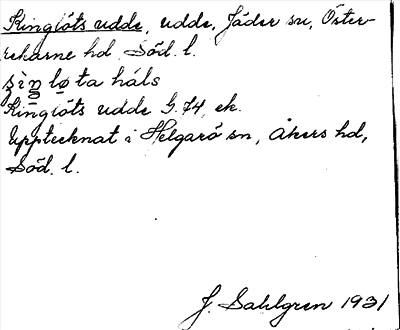 Kinglöts udde, udde, Jäder sn, Öster-
rekarne hd. Söd. l.
Kinglöts udde G. 74, ek.
Upptecknat i Helgarö sn, Åkers hd,
Söd. l.
J. Sahlgren 1931